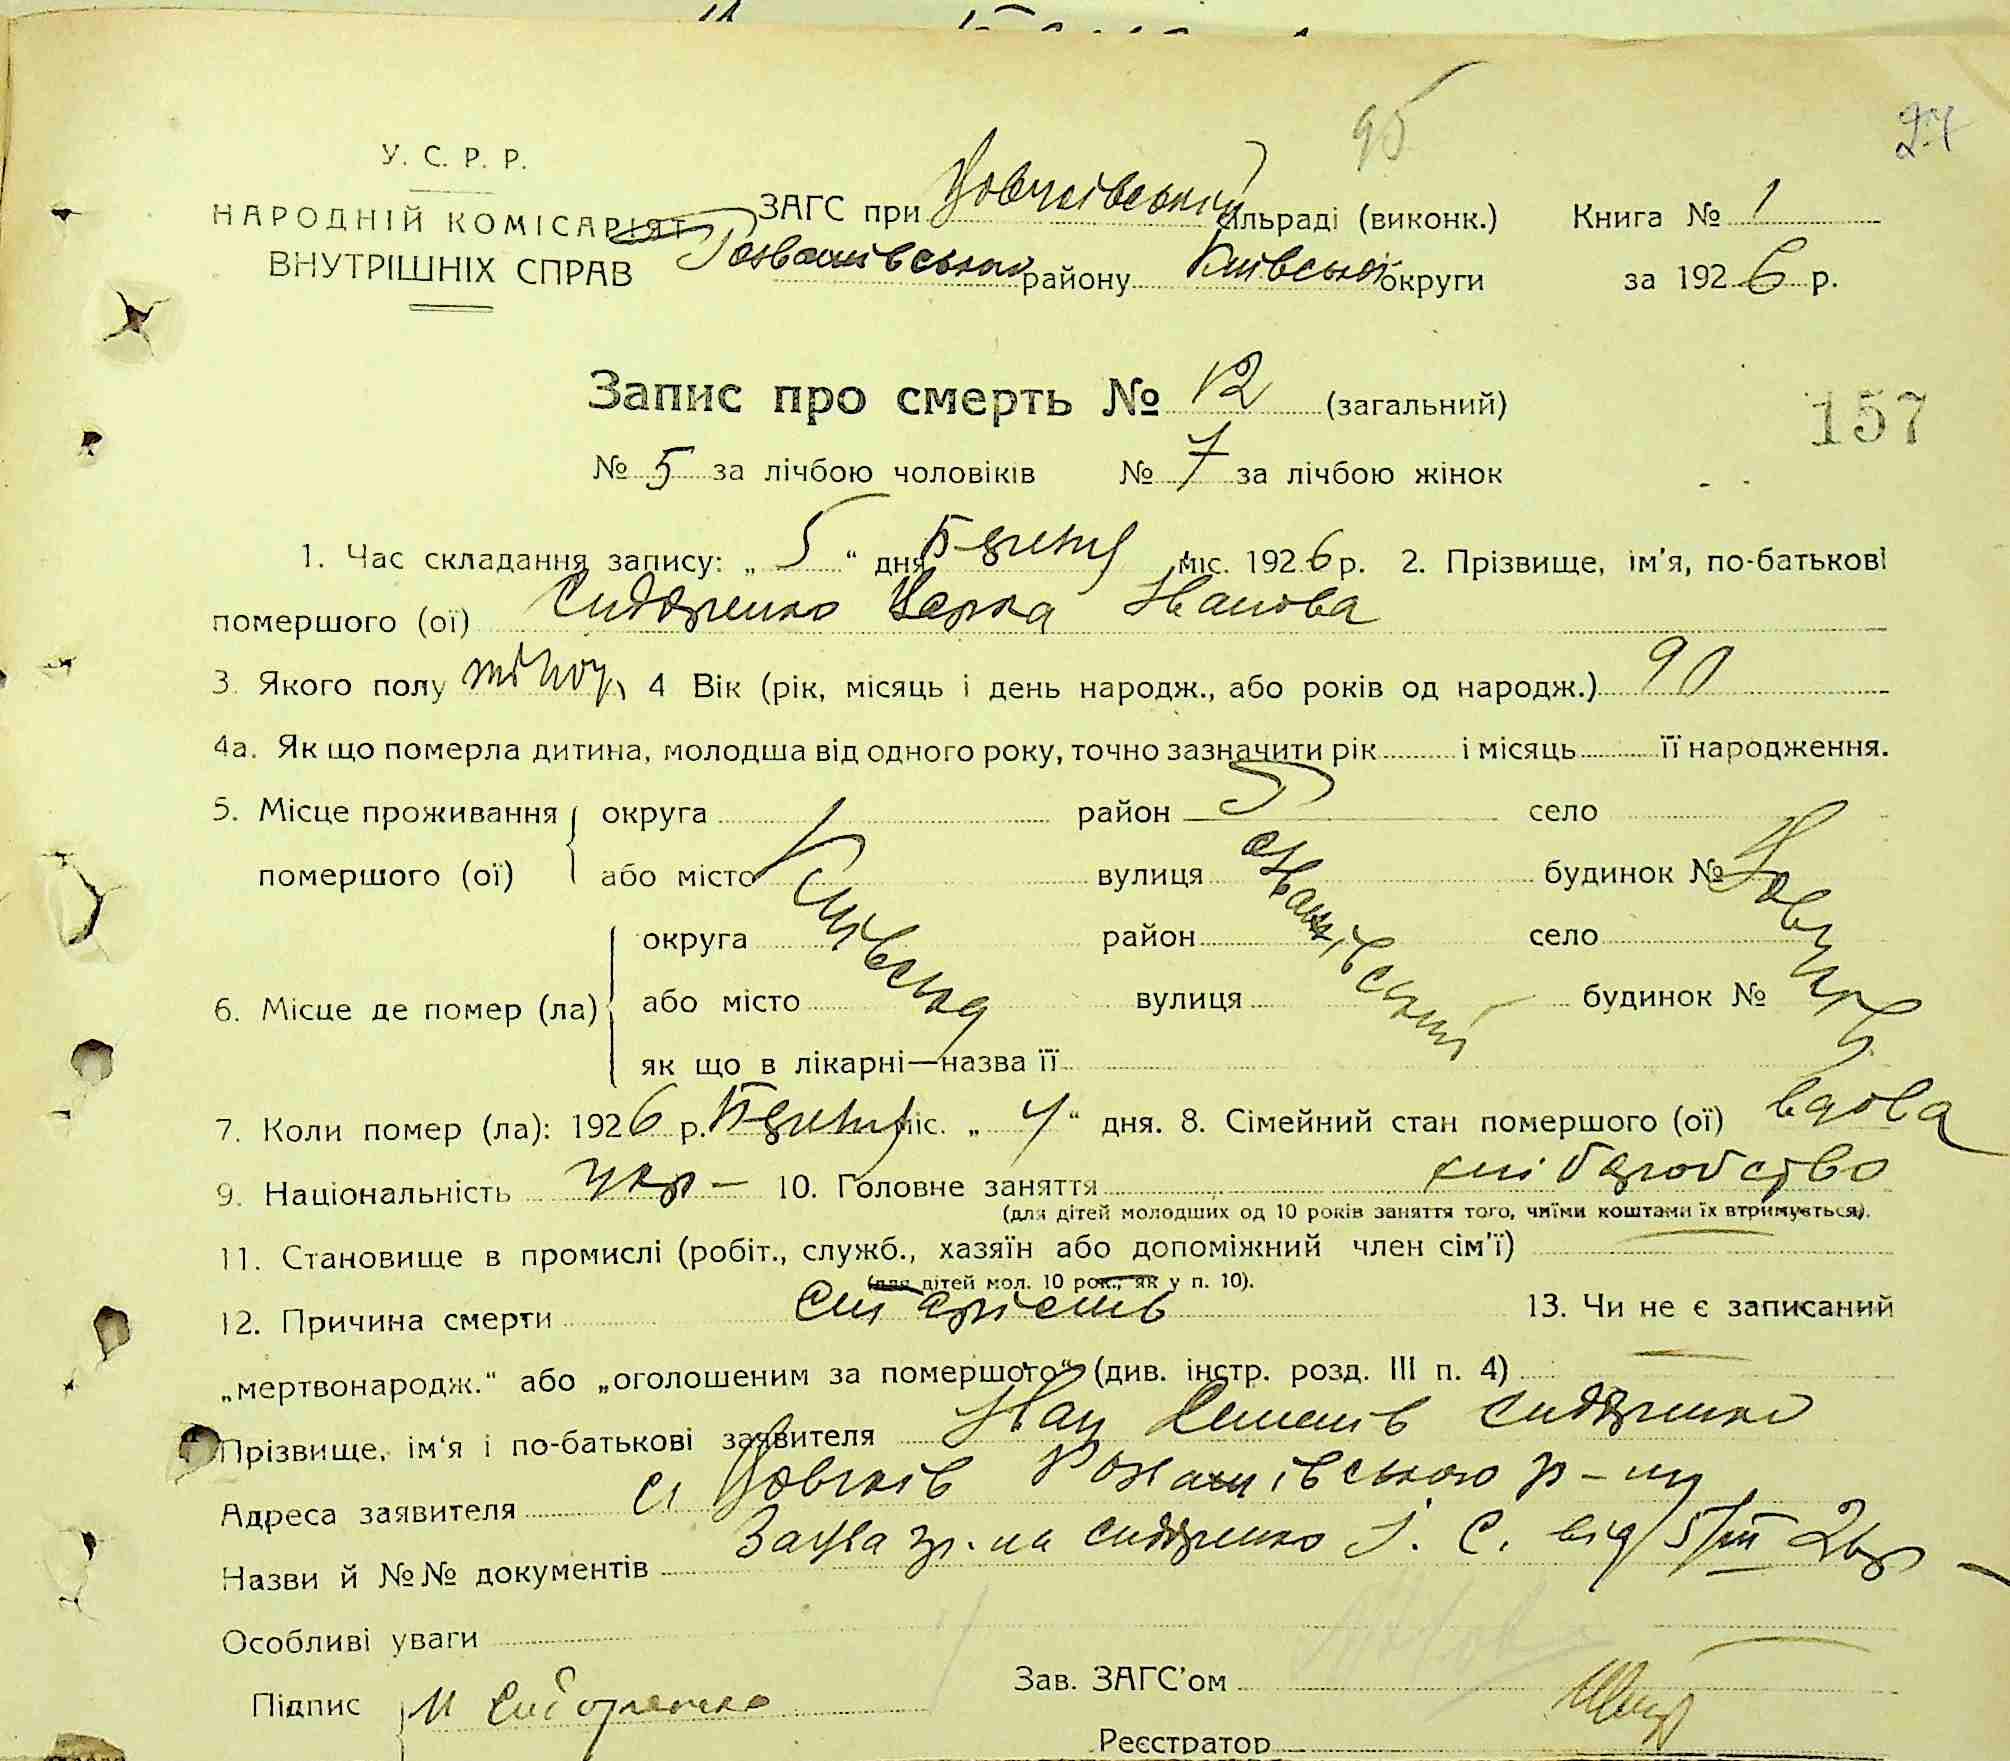 95
27
У. С. Р. Р.
НАРОДНІЙ КОМІСАРІЯТ
ВНУТРІШНІХ СПРАВ
ЗАГС при Вовчківській сільраді (виконк.) Книга № 1
Розважівського району Київської округи за 1926 р.
Запис про смерть № 12 (загальний)
157
№ 5 за лічбою чоловіків № 7 за лічбою жінок
1. Час складання запису: „ 5 “ дня Березня міс. 1926 р. 2. Прізвище, ім'я, по-батькові
помершого (ої) Сидоренко Іванова
3. Якого полу жіноч. 4 Вік (рік, місяць і день народж., або років од народж.) 90
4а. Як що померла дитина, молодша від одного року, точно зазначити рік і місяць її народження.
5. Місце проживання округа район село
помершого (ої) або місто вулиця будинок №
Київська Розважівський Вовчків
округа район село
6. Місце де помер (ла) або місто вулиця будинок №
як що в лікарні—назва її
7. Коли помер (ла): 1926 р. Березня міс. „ 4 “ дня. 8. Сімейний стан помершого (ої) вдова
9. Національність укр – 10. Головне заняття хліборобство
(для дітей молодших од 10 років заняття того, чиїми коштами їх втримується).
11. Становище в промислі (робіт., служб., хазяїн або допоміжний член сім'ї)
(для дітей мол. 10 рок., як у п. 10).
12. Причина смерти старість 13. Чи не є записаний
„мертвонародж.“ або „оголошеним за помершого“ (див. інстр. розд. III п. 4)
Прізвище, ім'я і по-батькові заявителя Іван Семенів Сидоренко
Адреса заявителя с. Вовчків Розважівського р-ну
Назви й №№ документів Заява гр-на Сидоренко І. С. від 5/III 26 р –
Особливі уваги
Зав. ЗАГС'ом
Підпис И Сидоренко
Реєстратор